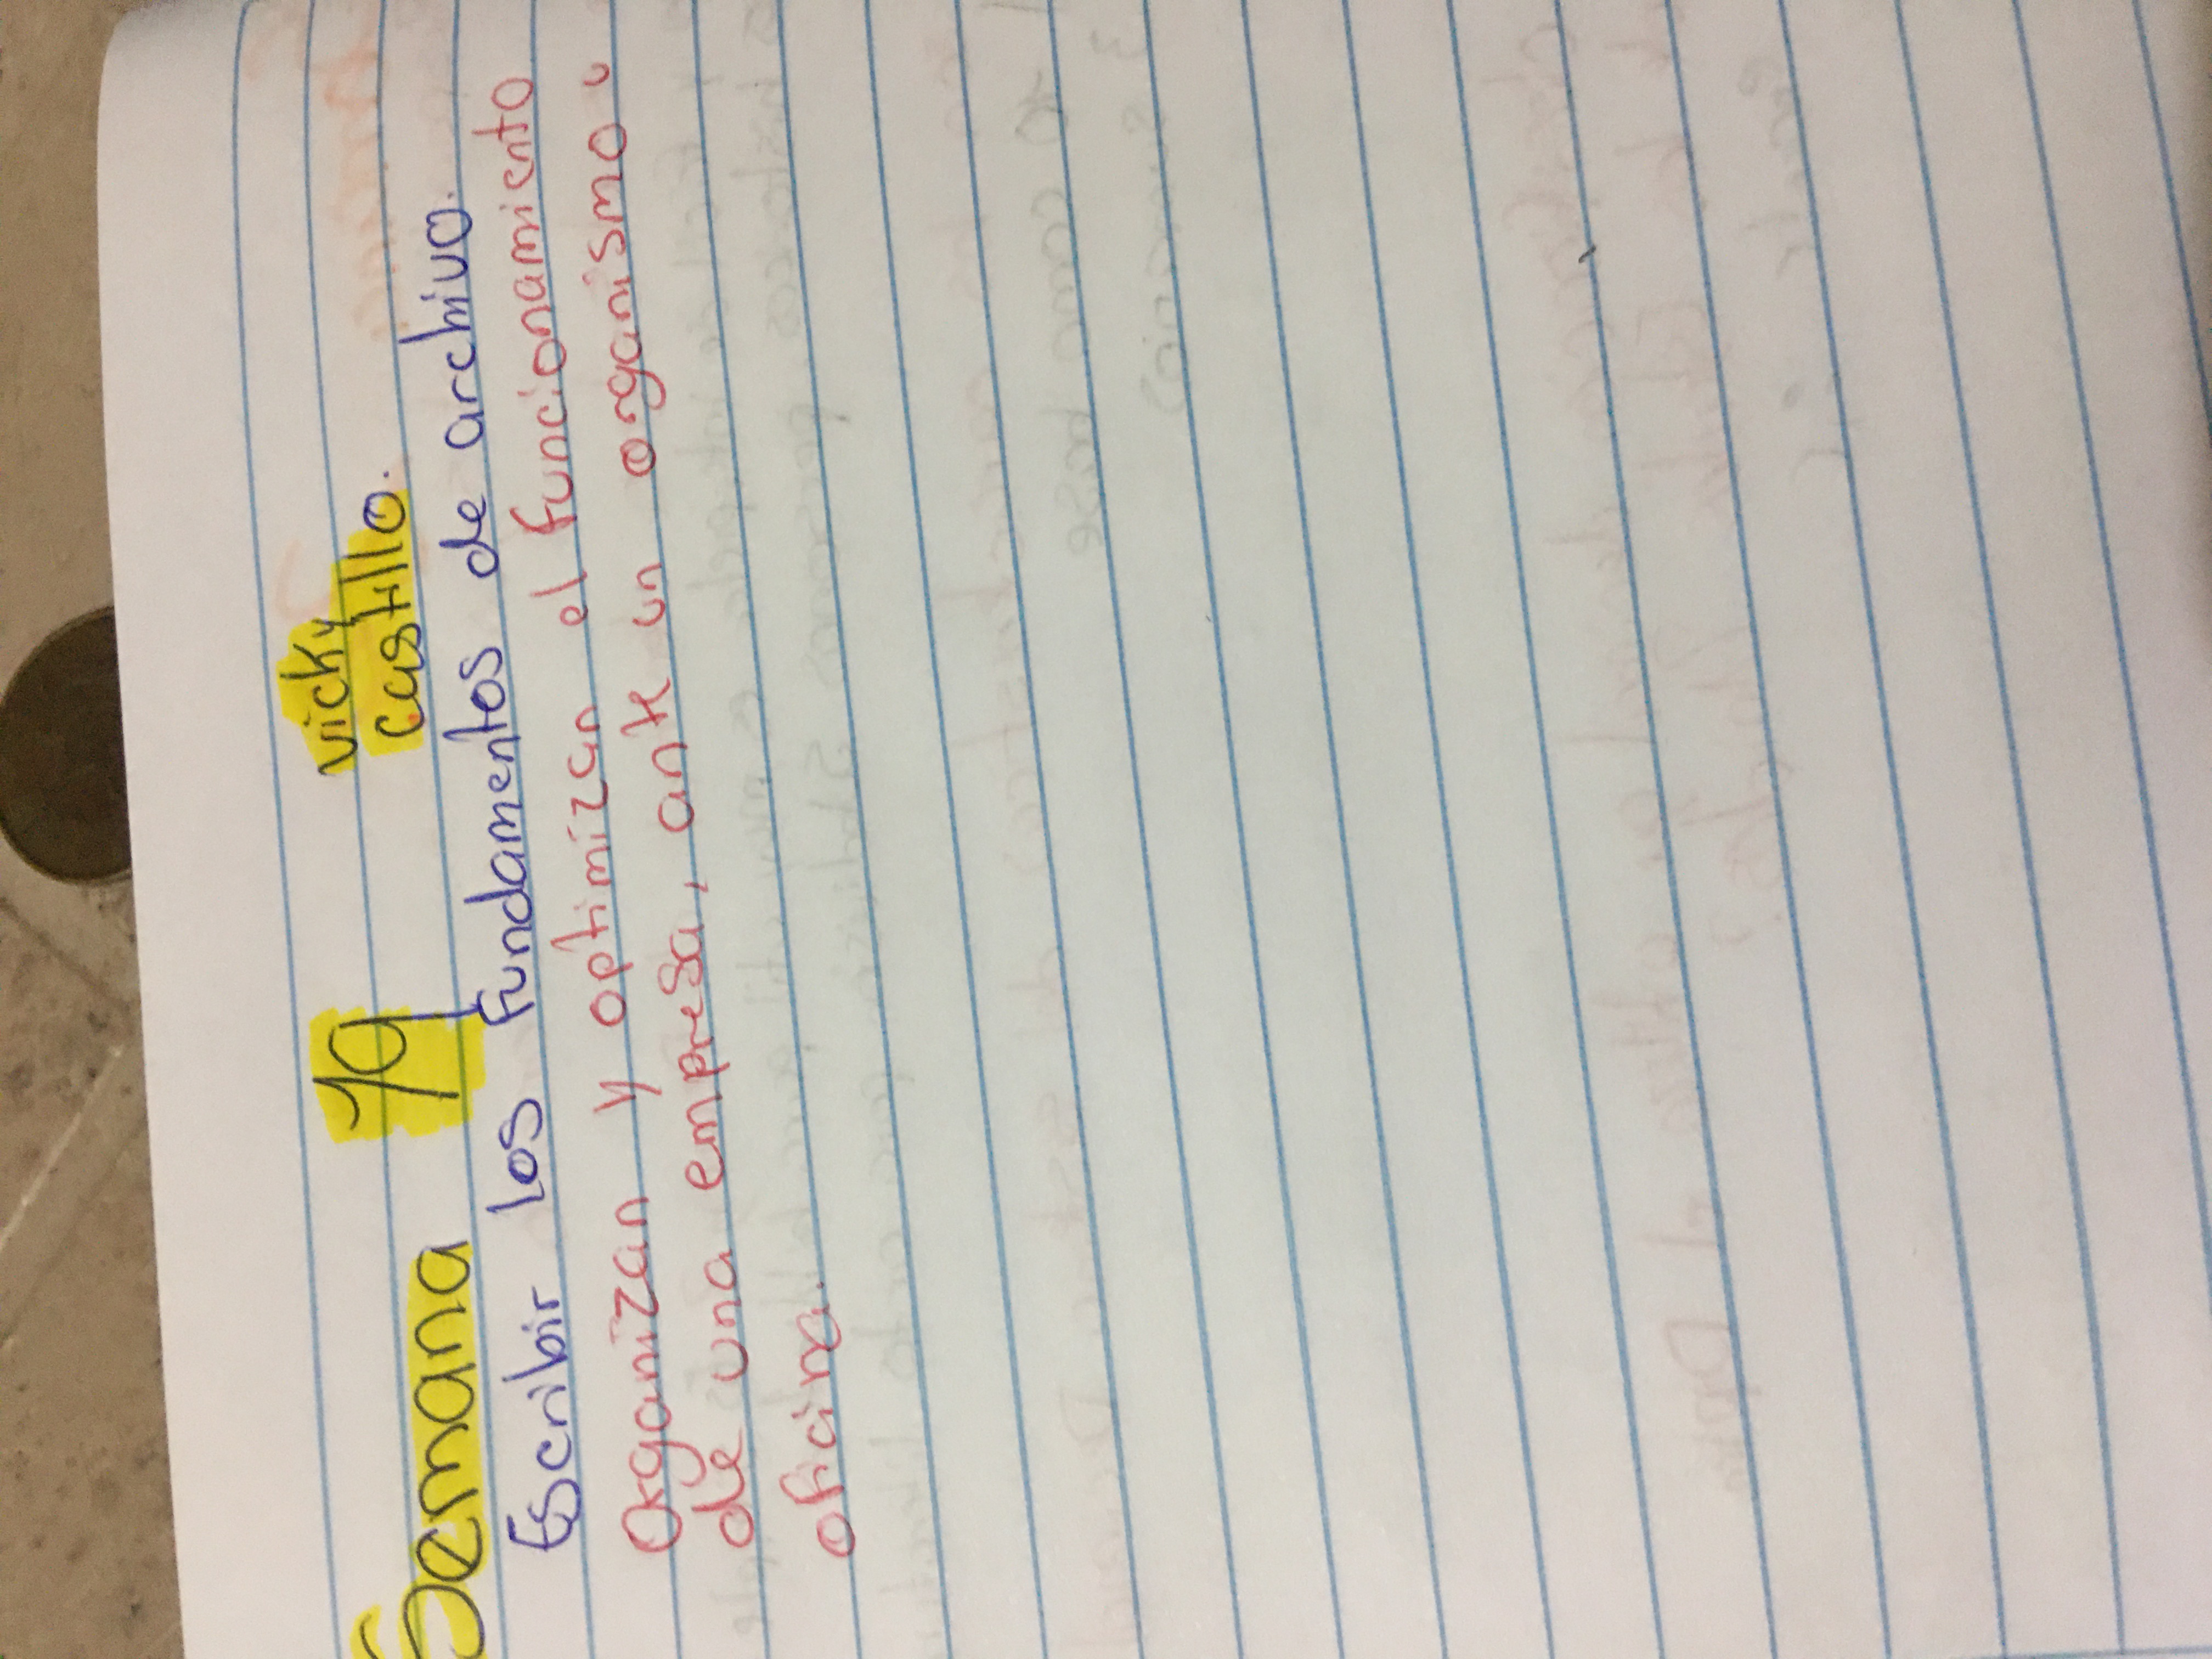 Semana 19
vicky
castillo.
Escribir los fundamentos de archivo.
Organizan y optimizan el funcionamiento
de una empresa, ante un organismo u
oficina.